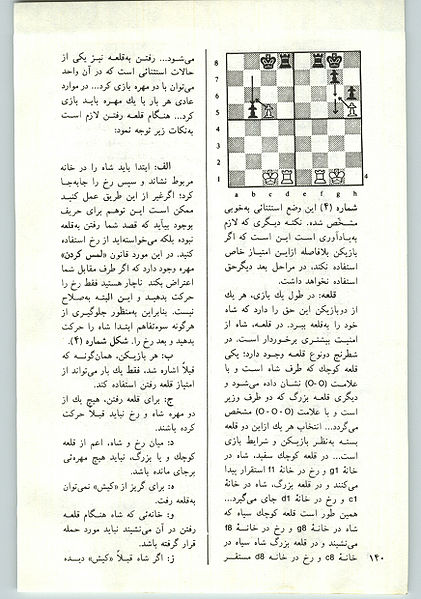 8
7
6
5
4
3
2
1
a b c d e f g h
4
شماره (۴) این وضع استثنائی به‌خوبی
مشخّص شده. نکته دیگری که لازم
به‌یادآوری است این است که اگر
بازیکن بلافاصله ازاین امتیاز خاص
استفاده نکند، در مراحل بعد دیگرحق
استفاده نخواهد داشت.
قلعه: در طول یك بازی، هر یك
از دوبازیکن این حق را دارد که شاه
خود را به‌قلعه ببرد. در قلعه، شاه از
امنیت بیشتری برخوردار است. در
شطرنج دونوع قلعه وجود دارد: یکی
قلعه کوچك که طرف شاه است و با
علامت (O-O) نشان داده می‌شود و
دیگری قلعه بزرگ که دو طرف وزیر
است و با علامت (O-O-O) مشخص
می‌گردد... انتخاب هر یك ازاین دو قلعه
بسته به‌نظر بازیکن و شرایط بازی
است... در قلعه کوچك سفید، شاه در
خانهٔ g1 و رخ در خانهٔ f1 استقرار پیدا
می‌کنند و در قلعه بزرگ، شاه در خانهٔ
c1 و رخ در خانهٔ d1 جای می‌گیرد...
همین طور است قلعه کوچك سیاه که
شاه در خانهٔ g8 و رخ در خانهٔ f8
می‌نشیند و در قلعه بزرگ شاه سیاه در
خانهٔ c8 و رخ در خانه d8 مستقـر
می‌شود... رفتـن به‌قلعـه نیـز یکی از
حالات استثنائی است که در آن واحد
می‌توان با دو مهره بازی کرد... در موارد
عادی هر بار با یك مهره بایـد بازی
کرد... هنـگام قلعه رفتـن لازم است
به‌نکات زیر توجه نمود:
الف: ابتدا باید شاه را در خانه
مربوط نشاند و سپس رخ را جابه‌جا
کرد؛ اگرغیر از این طریق عمل کنیـد
ممکن است ایـن توهـم برای حریف
بوجود بیآید که قصد شما رفتن به‌قلعه
نبوده بلکه می‌خواسته‌اید از رخ استفاده
کنید. در این مورد قانون «لمس کردن»
مهره وجود دارد که اگر طرف مقابل شما
اعتراض بکند ناچار هستید فقط رخ را
حرکت بدهیـد و ایـن البته به‌صـلاح
نیست. بنابراین به‌منظور جلوگیری از
هرگونه سوءتفاهم ابتـدا شاه را حرکت
بدهید و بعد رخ را. شکل شماره (۴).
ب: هر بازیـکن، همان‌گونـه که
قبلاً اشاره شد، فقط یك بار می‌تواند از
امتیاز قلعه رفتن استفاده کند.
ج: برای قلعه رفتن، هیچ یك از
دو مهره شاه و رخ نباید قبلاً حرکت
کرده باشند.
د: میان رخ و شاه، اعم از قلعه
کوچك و یا بزرگ، نباید هیچ مهره‌ئی
برجای مانده باشد.
ه: برای گریز از «کیش» نمی‌توان
به‌قلعه رفت.
و: خانه‌ئی که شاه هنـگام قلعـه
رفتن در آن می‌نشیند نباید مورد حمله
قرار گرفته باشد.
ز: اگر شاه قبـلاً «کیش» دیـده
۱۴۰